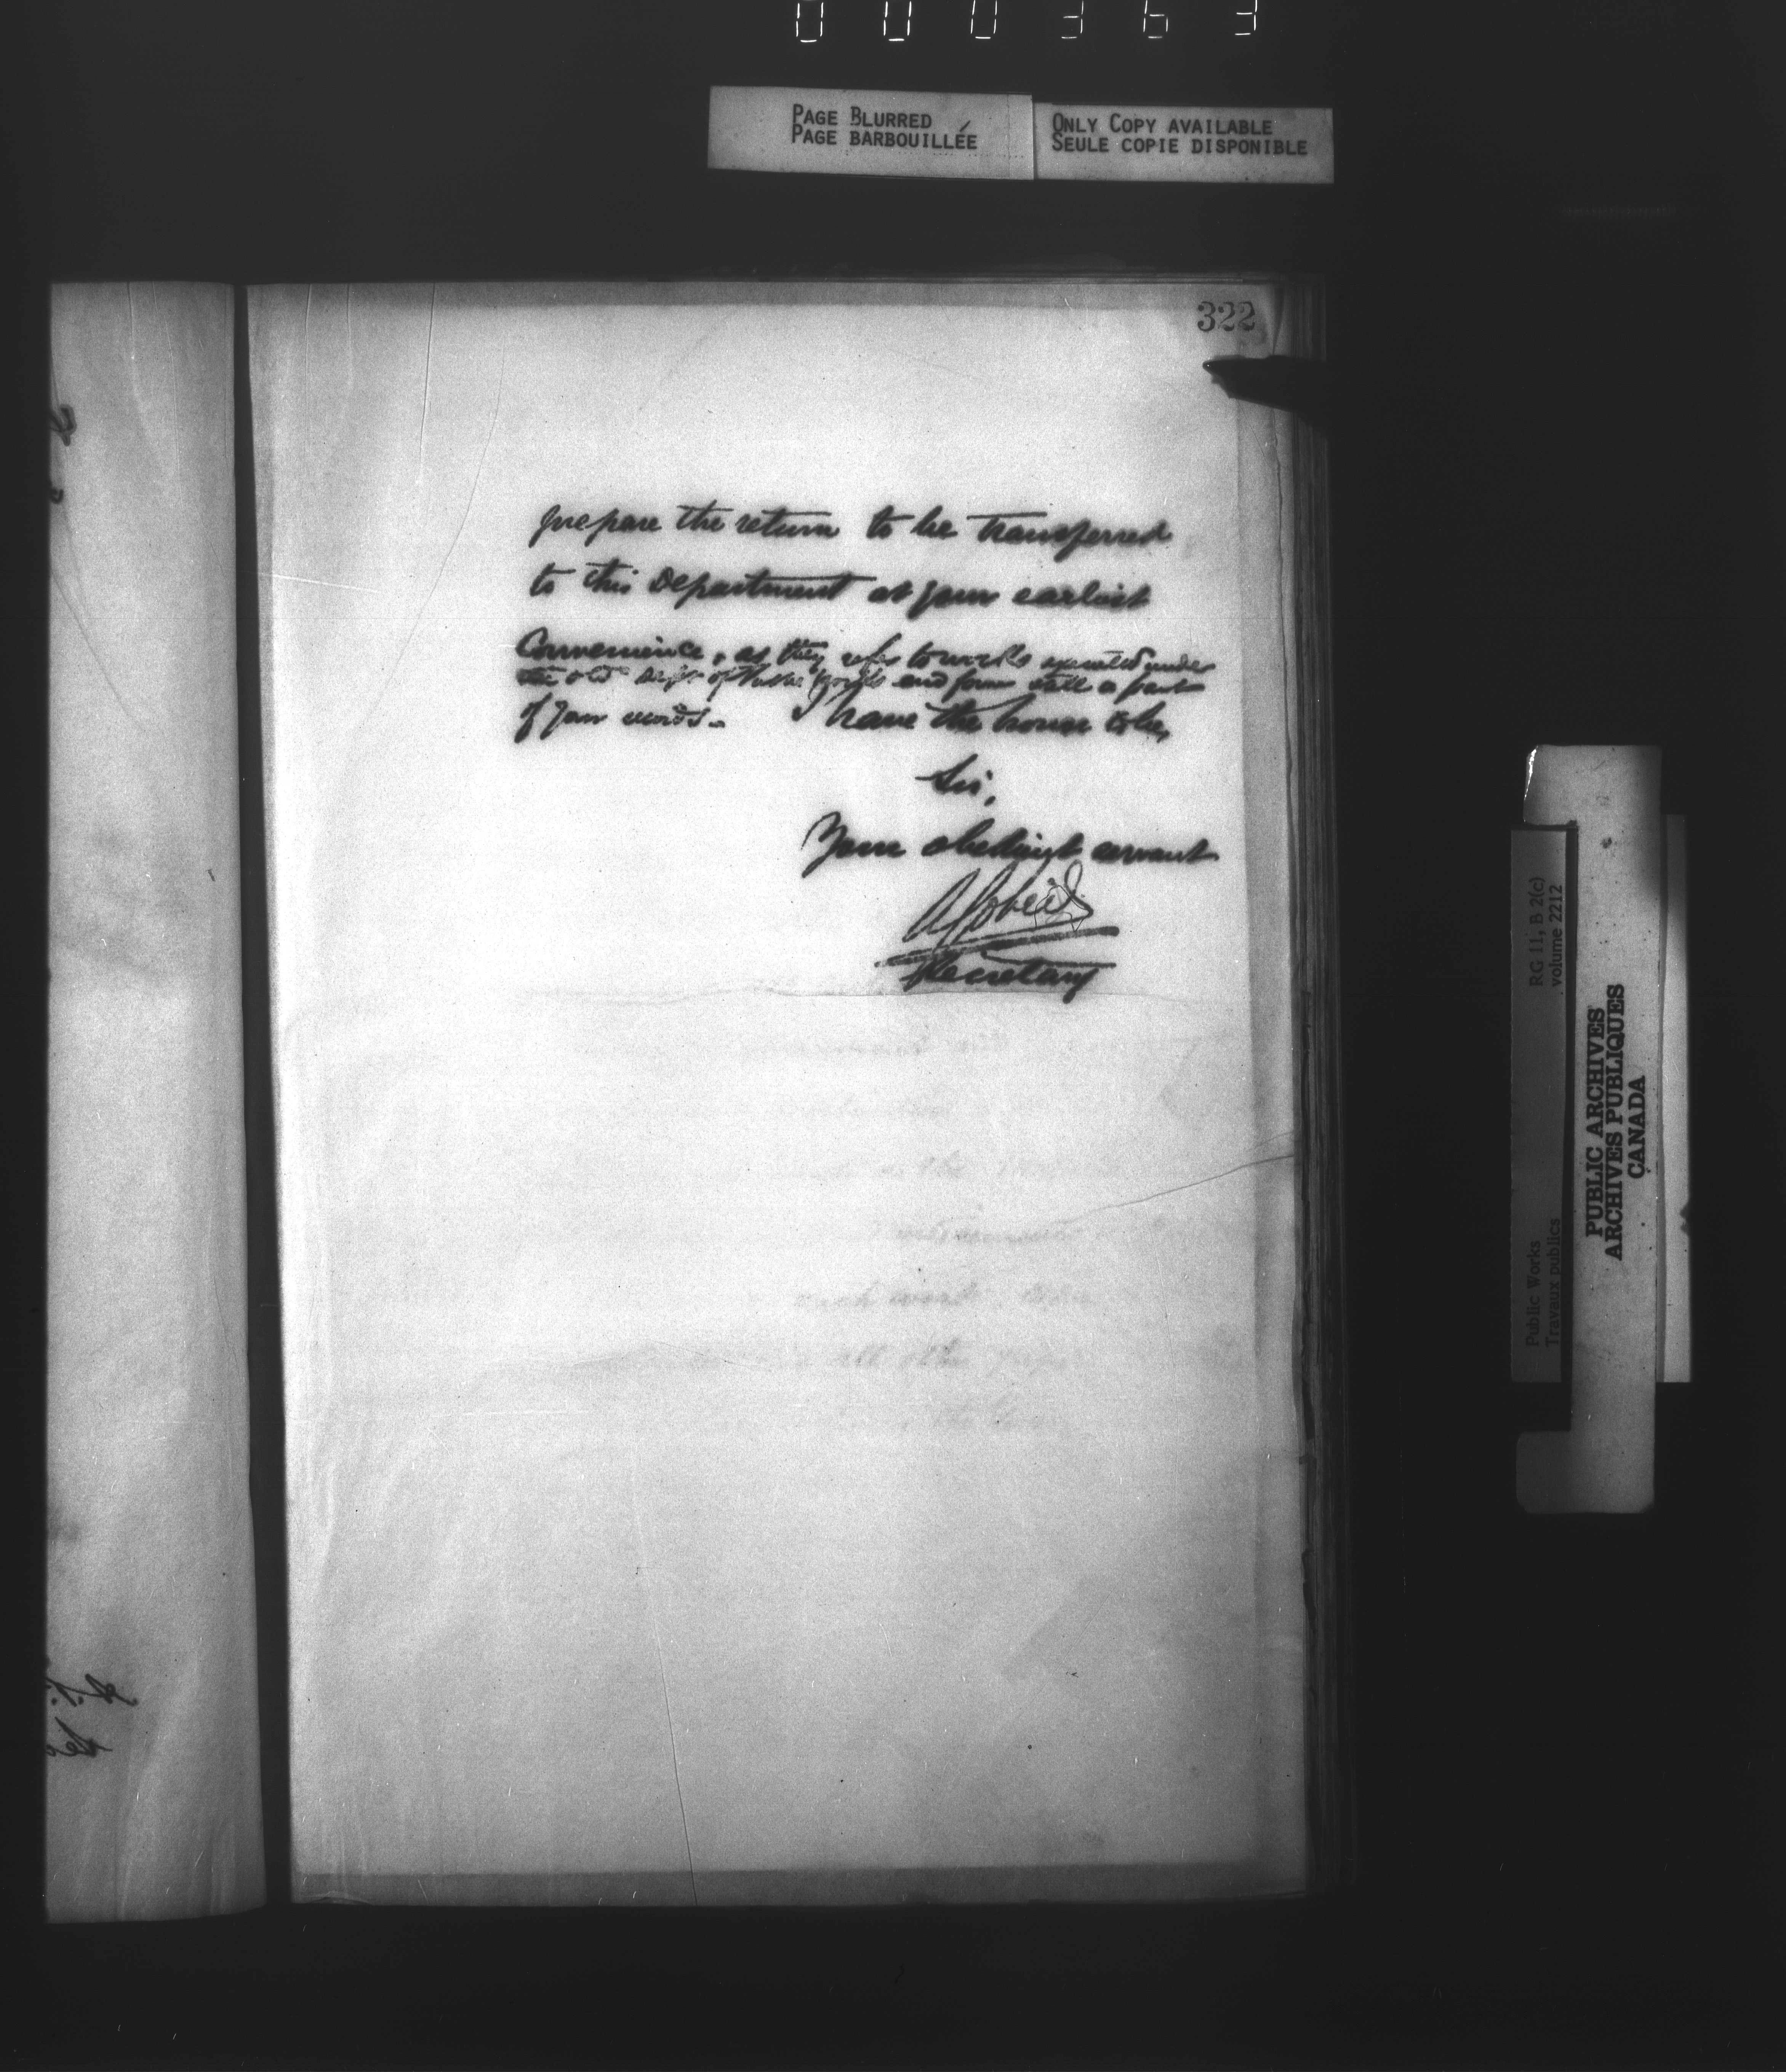 000363
PAGE BLURRED
PAGE BARBOUILLÉE
ONLY COPY AVAILABLE
SEULE COPIE DISPONIBLE
322
prepare the return to be transferred
to this Department at your earliest
Convenience, as they refer to works executed under
the old Dept of Public Works and form still a part
of your records. I have the honor to be,
Sir,
Your obedient servant
Secretary
RG 11, B 2(c)
volume 2212
Public Works
Travaux publics
PUBLIC ARCHIVES
ARCHIVES PUBLIQUES
CANADA